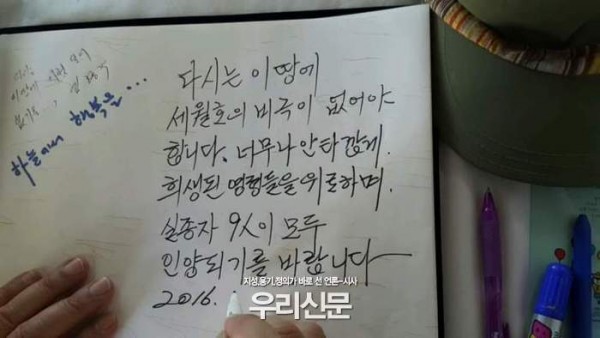 하늘에서 행복을...
다시는 이 땅에
세월호의 비극이 없어야
합니다. 너무나 안타깝게
희생된 영령들을 위로하며.
실종자 9人이 모두
인양되기를 바랍니다
2016.
지성,용기,정의가 바로 선 언론-시사
우리신문